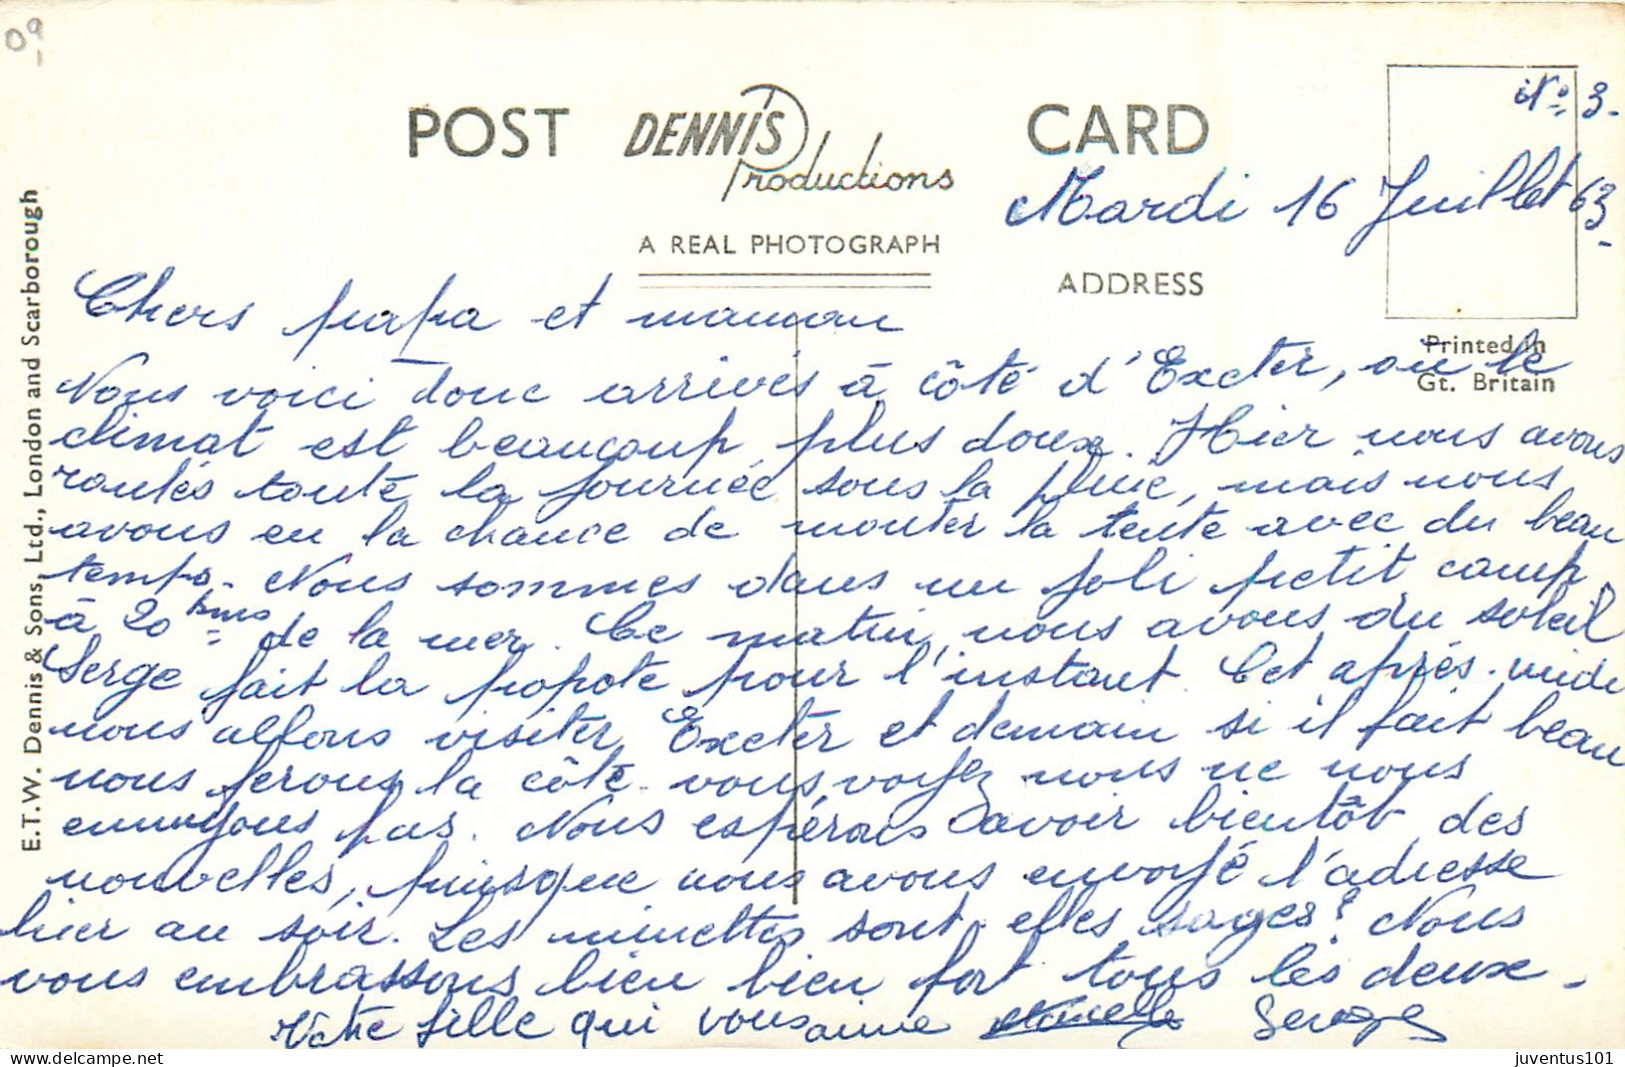 09
POST DENNIS Productions CARD
N° 3.
Mardi 16 Juillet 63.
A REAL PHOTOGRAPH
ADDRESS
Printed in
Gt. Britain
E.T.W. Dennis & Sons, Ltd., London and Scarborough
Chers papa et maman
Nous voici donc arrivés à côté d'Excter, ou le
climat est beaucoup plus doux. Hier nous avons
roulés toute la journée sous la pluie, mais nous
avons eu la chance de monter la tente avec du beau
temps. Nous sommes dans un joli petit camp
à 20 kms de la mer. Ce matin, nous avons du soleil
Serge fait la popote pour l'instant. Cet après-midi
nous allons visiter Excter et demain si il fait beau
nous ferons la côte. vous voyez nous ne nous
ennuyons pas. Nous espérons avoir bientôt des
nouvelles, puisque nous avons envoyé l'adresse
hier au soir. Les minettes sont elles sages? Nous
vous embrassons bien bien fort tous les deux.
Votre fille qui vous aime Serge
juventus101